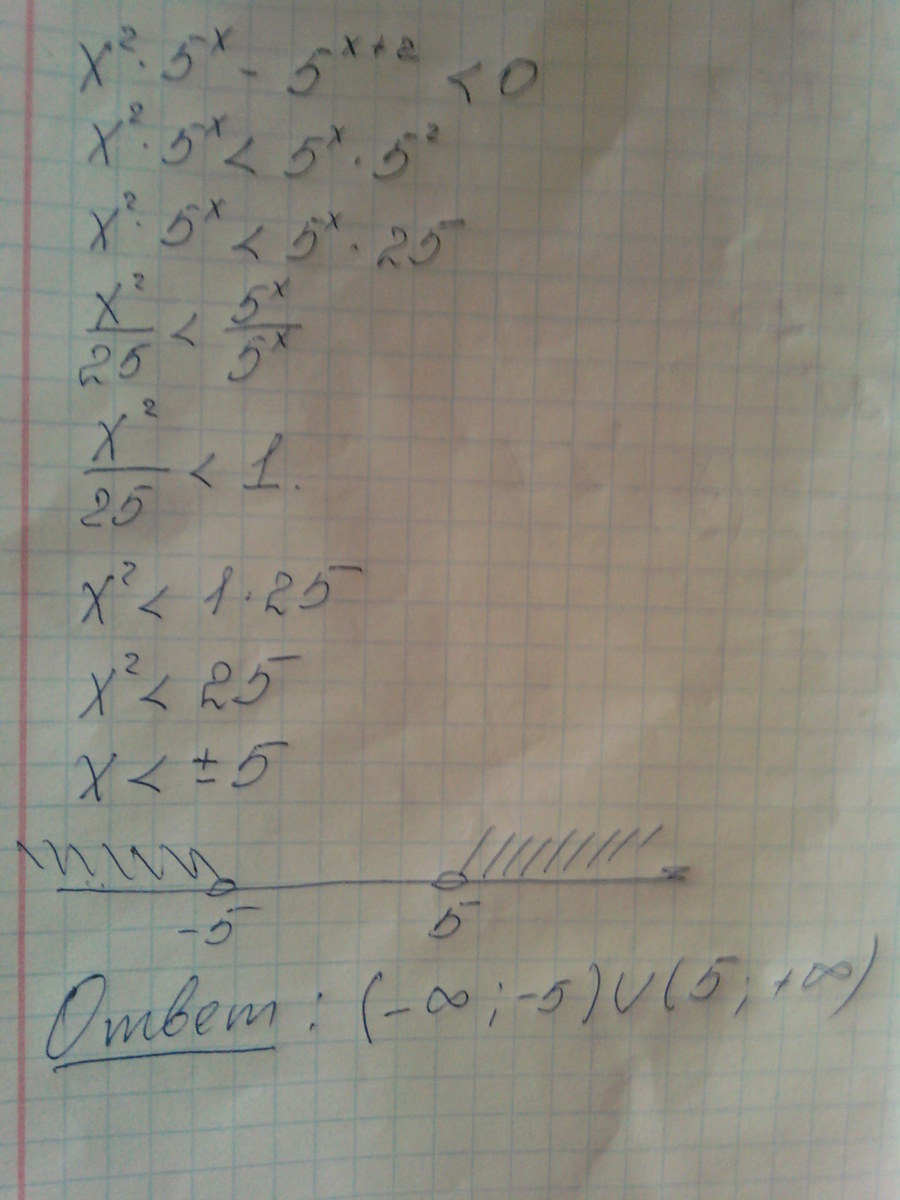 x² · 5ˣ - 5ˣ⁺² < 0
x² · 5ˣ < 5ˣ · 5²
x² · 5ˣ < 5ˣ · 25
x²/25 < 5ˣ/5ˣ
x²/25 < 1.
x² < 1 · 25
x² < 25
x < ± 5
-5 5
Ответ: (-∞; -5) ∪ (5; +∞)